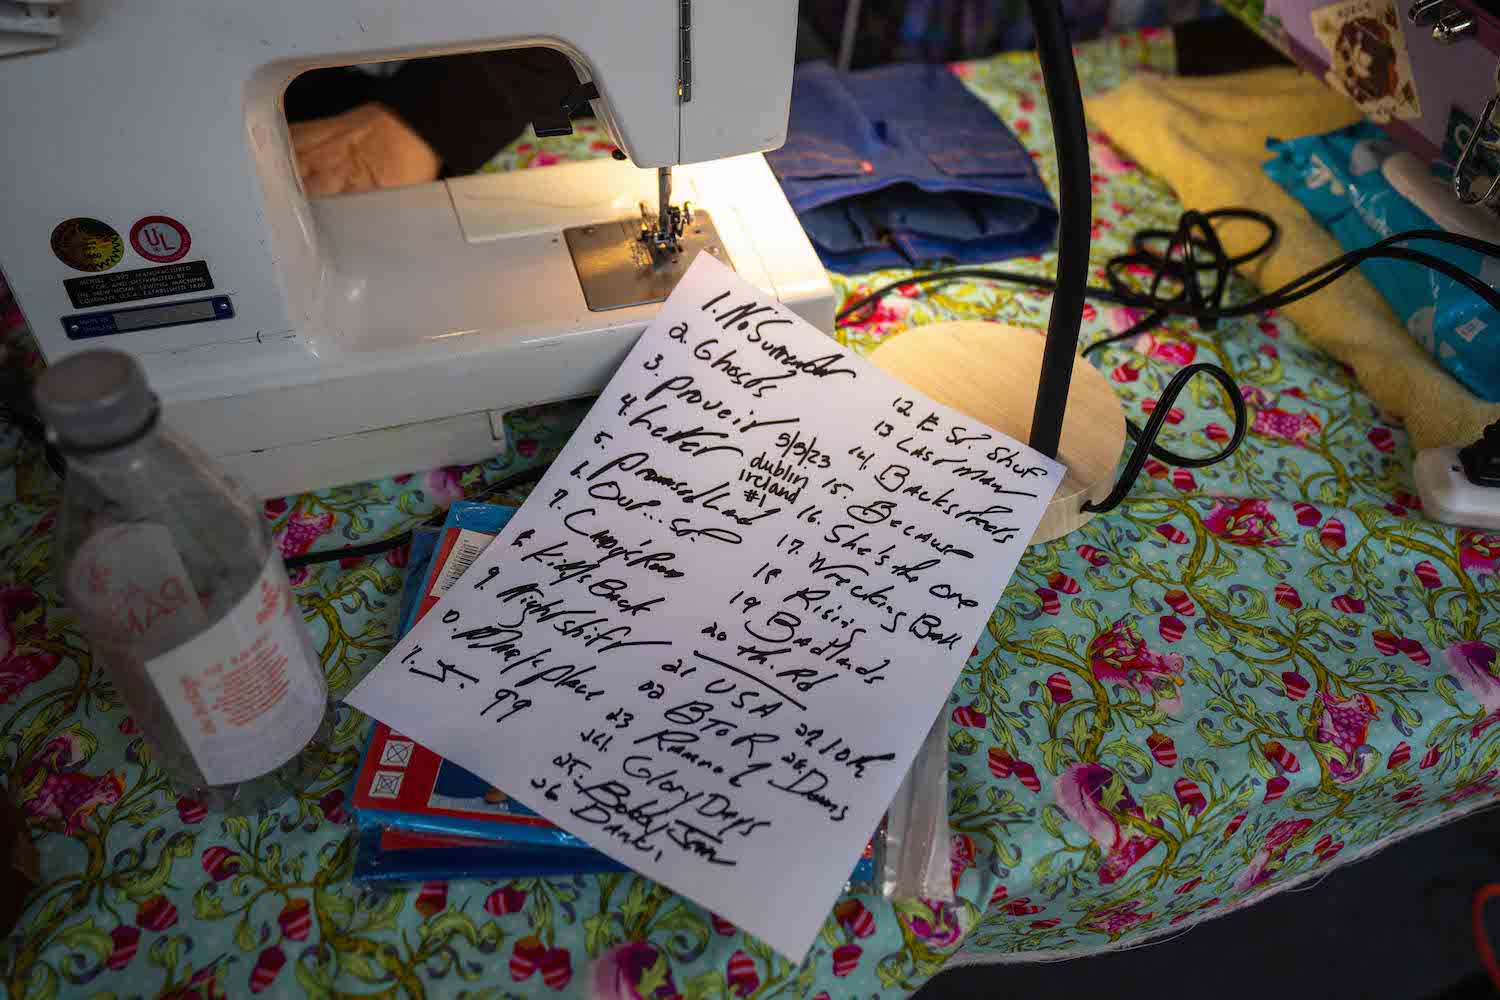 UL
MODEL
MANUFACTURED
AND DISTRIBUTED BY
THE NEW HOME SEWING MACHINE
COMPANY, U.S.A. ESTABLISHED 1860
1. No Surrender
2. Ghosts
3. Prove it
4. Letter
5. Promised Land
6. Out...St.
7. Candy's Room
8. Kitty's Back
9. Nightshift
0. Mary's place
1. E. St.
99
9/9/23
dublin
ireland
#1
12. E St. Shuf
13 Last Man
14. Backstreets
15. Because
16. She's the one
17. Wrecking Ball
18 Rising
19 Badlands
20 th. Rd
21 USA
22 BToR
23 Ramrod
24. Glory Days
25. Bobby Jean
26 Danc,
27 10th
28. Dreams